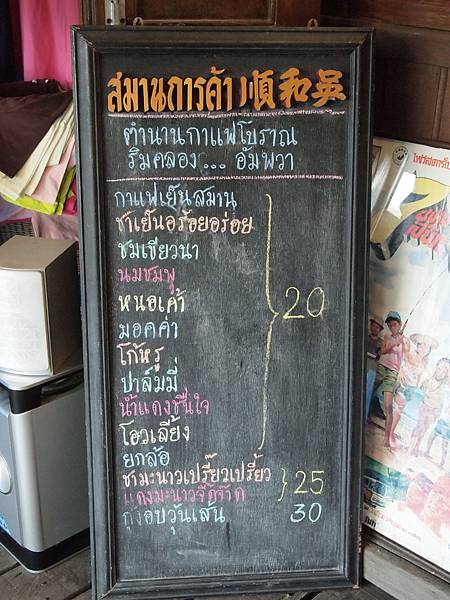 สมานการค้า 順和吳
ตำนานกาแฟโบราณ
ริมคลอง... อัมพวา
กาแฟเย็นสมาน
ชาเย็นอร้อยอร่อย
ชมเขียวนา
นมชมพู
หนอเค้า
มอคค่า
โก้หรู
ปาล์มมี่
น้ำแดงชื่นใจ
โอวเลี้ยง
20
ยกล้อ
ชามะนาวเปรี๊ยวเปรี้ยว
แดงมะนาวจี๊ดจ๊าด
25
กุ้งอบวุ้นเส้น 30
7